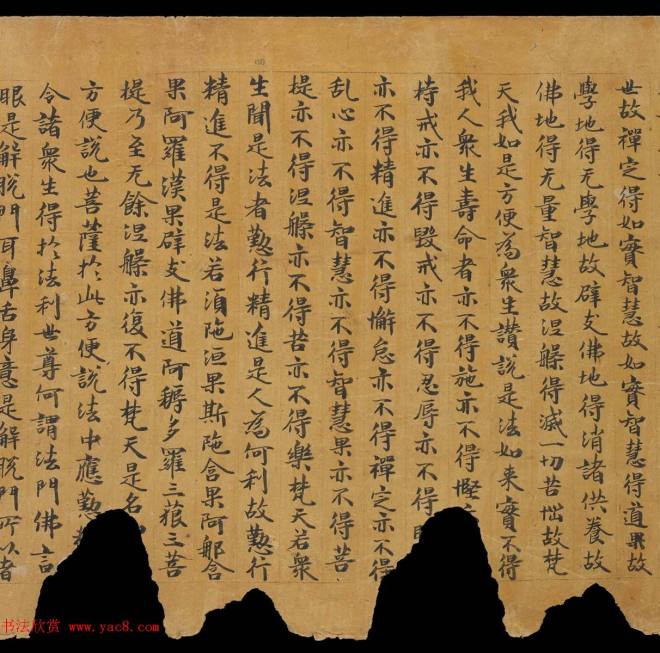 世故禪定得如實智慧故如實智慧得道果故
學地得无學地故辟支佛地得消諸供養故
佛地得无量智慧故涅槃得滅一切苦惱故梵
天我如是方便為衆生讃說是法如来實不得
我人衆生壽命者亦不得施亦不得慳
持戒亦不得毀戒亦不得忍辱亦不得
亦不得精進亦不得懈怠亦不得禪定亦不得
乱心亦不得智慧亦不得智慧果亦不得菩
提亦不得涅槃亦不得苦亦不得樂梵天若衆
生聞是法者懃行精進是人為何利故懃行
精進不得是法若須陁洹果斯陁含果阿那含
果阿羅漢果辟支佛道阿耨多羅三藐三菩
提乃至无餘涅槃亦復不得梵天是名
方便說也菩薩於此方便說法中應懃
令諸衆生得於法利世尊何謂法門佛言
眼是解脫門耳鼻舌身意是解脫門所以者
书法欣赏 www.yac8.com